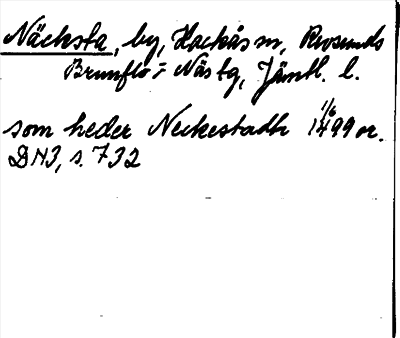 Näcksta, by, Hackås sn, Revsunds
Brunflo- o Näs tg, Jämtl. l.
som heder Neckestadh 1/6 1499 or.
DN3, s. 732